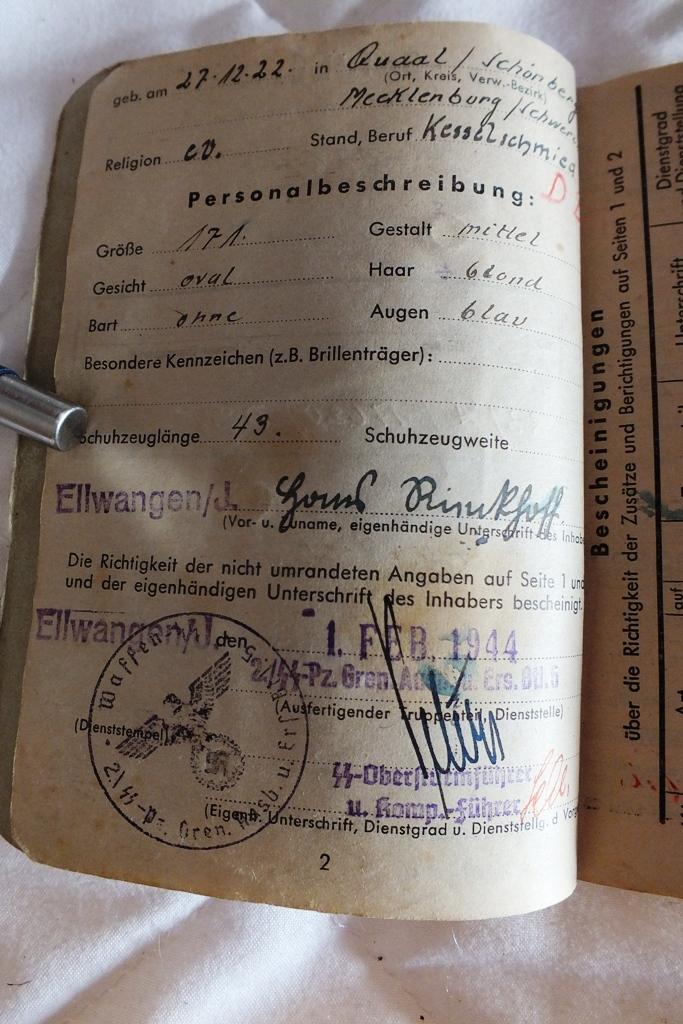 geb. am 27.12.22. in Quaal / Schönberg
(Ort, Kreis, Verw.-Bezirk)
Mecklenburg / Schwer
Religion ev. Stand, Beruf Kesselschmied
D
Personalbeschreibung:
Größe 171. Gestalt mittel
Gesicht oval Haar blond
Bart ohne Augen blau
Besondere Kennzeichen (z.B. Brillenträger):
Schuhzeuglänge 43. Schuhzeugweite
Ellwangen/J. Hans
(Vor- u. Zuname, eigenhändige Unterschrift des Inhabe
Die Richtigkeit der nicht umrandeten Angaben auf Seite 1 und
und der eigenhändigen Unterschrift des Inhabers bescheinigt.
Ellwangen/J. den 1. FEB. 1944
2/SS-Pz. Gren. Ausb. u. Ers. Btl. 5
(Ausfertigender Truppenteil, Dienststelle)
(Dienststempel)
Waffen
2/SS-Pz. Gren. Ausb. u. Ers.
SS-Obersturmführer
u. Komp.-Führer
(Eigenh. Unterschrift, Dienstgrad u. Dienststellg. d. Vorg
2
Bescheinigungen
über die Richtigkeit der Zusätze und Berichtigungen auf Seiten 1 und 2
Dienstgrad
Dienststellung
Unterschrift
auf